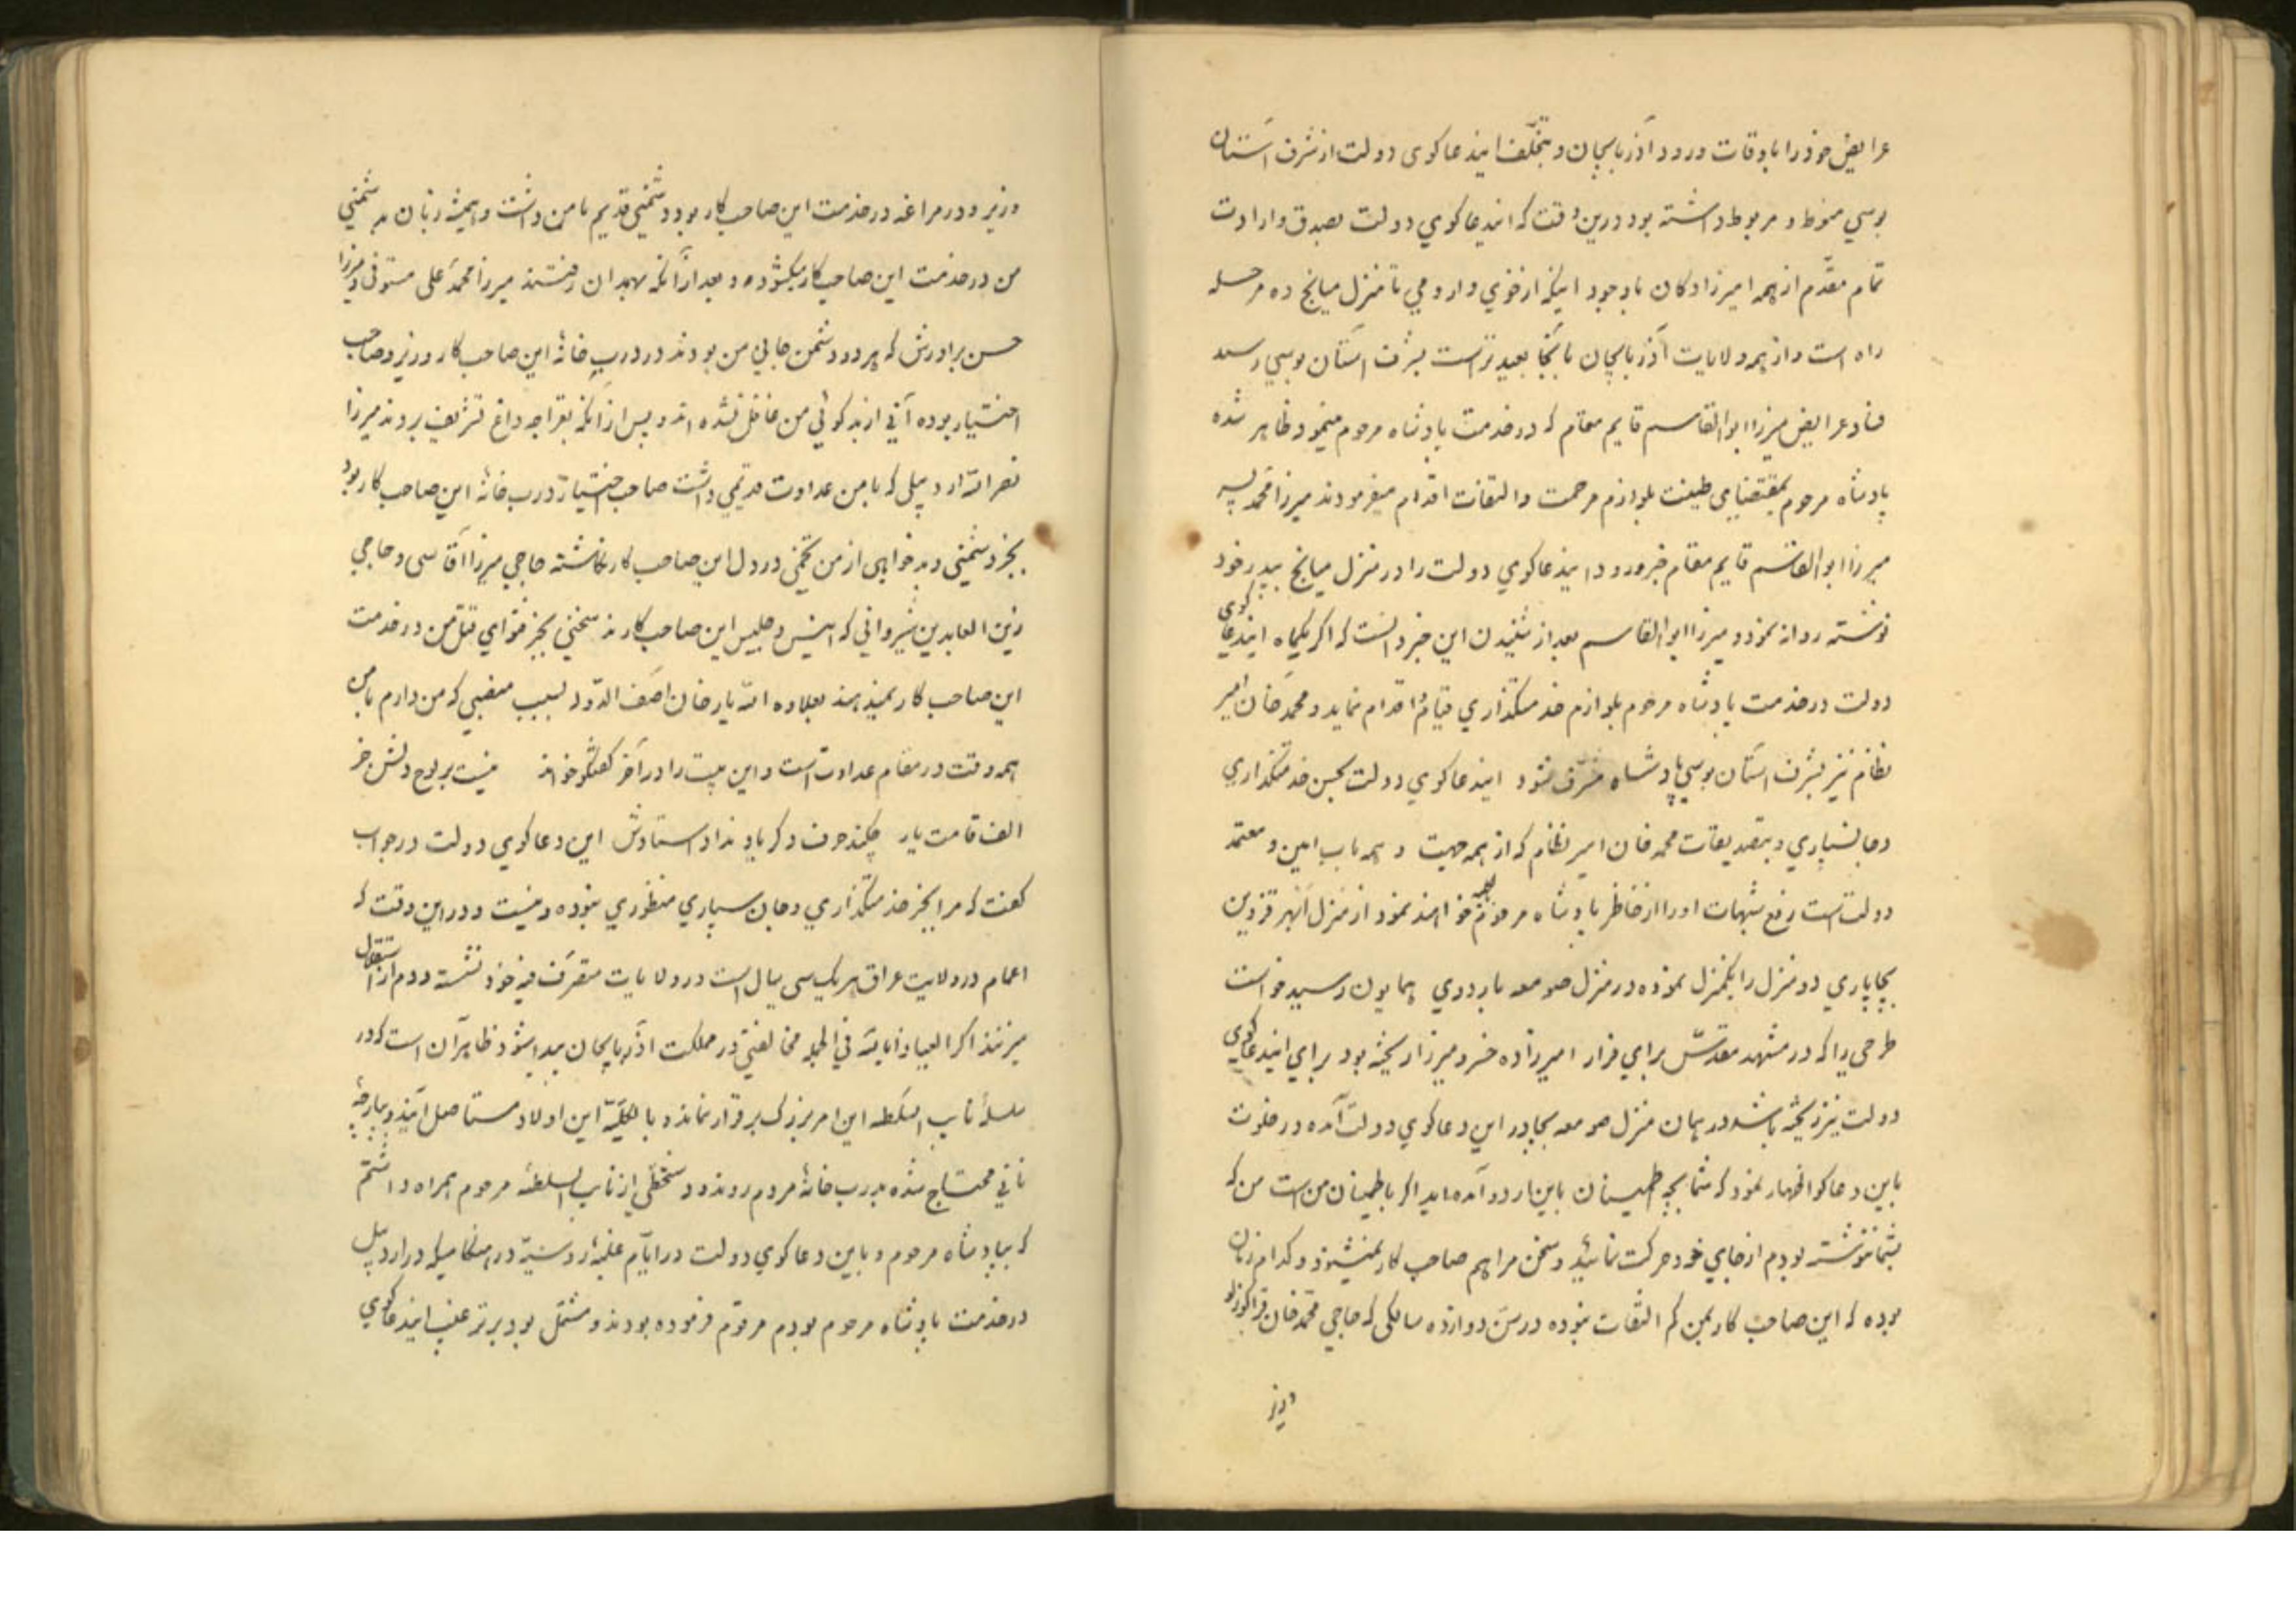 عرایض خود را باوقات ورود آذربایجان و بتخلف ایندعاکوی دولت از شرف آستان
بوسي منوط و مربوط داشته بود درین وقت که ایندعاکوي دولت بصدق و ارادت
تمام مقدّم از همه امیرزادکان باوجود اینکه از خوي و ارومي تا منزل میانج ده مرحله
راه است و از همه ولایات آذربایجان بآنجا بعیدتر است بشرف آستان بوسي رسید
فساد عرایض میرزا ابوالقاسم قایم مقام که در خدمت پادشاه مرحوم مینمود ظاهر شده
پادشاه مرحوم بمقتضاي طینت بلوازم مرحمت و التفات اقدام میفرمودند میرزا محمد پسر
میرزا ابوالقاسم قایم مقام خبر ورود ایندعاکوي دولت را در منزل میانج بپدر خود
نوشته روانه نمود و میرزا ابوالقاسم بعد از شنیدن این خبر دانست که اکر یکماه ایندعاکوي
دولت در خدمت پادشاه مرحوم بلوازم خدمتکذاري قیام و اقدام نماید و محمد خان امیر
نظام نیز بشرف آستان بوسي پادشاه مشرّف شود ایندعاکوي دولت بحسن خدمتکذاري
و جانسپاري و بتصدیقات محمد خان امیر نظام که از همه جهت و همه باب امین و معتمد
دولت است رفع شبهات او را از خاطر پادشاه مرحوم خواهند نمود از منزل ابهر قزوین
بچاپاري دو منزل را یکمنزل نموده در منزل صومعه باردوي همایون رسید خواست
طرحي را که در مشهد مقدّس براي فرار امیرزاده خسرو میرزا ریخته بود براي ایندعاکوي
دولت نیز ریخته باشد در همان منزل صومعه بچادر این دعاکوي دولت آمده در خلوت
باین دعاکو اظهار نمود که شما بچه اطمینان باین اردو آمده اید اکر باطمینان من است من که
بشما نوشته بودم از جاي خود حرکت نمائید و سخن مرا هم صاحب کار نمیشنود و کدام زمان
بوده که این صاحب کار بمن کم التفات نبوده در سن دوازده سالکی که حاجي محمد خان قراکوزلو
وزیر
وزیر و در مراغه در خدمت این صاحب کار بود دشمني قدیم با من داشت و همیشه زبان به دشمني
من در خدمت این صاحب کار میکشوده و بعد از آنکه بهمدان رفتند میرزا محمد علی مستوفی و میرزا
حسن برادرش که هر دو دشمن جاني من بودند در درب خانهٔ این صاحب کار وزیر و صاحب
اختیار بوده آني از بدکوئي من غافل نشده اند و پس از آنکه بقراجه داغ تشریف بردند میرزا
نصرالله اردبیلي که با من عداوت قدیمي داشت صاحب اختیار درب خانهٔ این صاحب کار بود
بجز دشمني و بدخواهی از من تخمي در دل این صاحب کار نکاشته حاجي میرزا آقاسی و حاجي
زین العابدین شیرواني که انیس و جلیس این صاحب کارند سخني بجز فتواي قتل من در خدمت
این صاحب کار نمیزنند بعلاوه الله یار خان آصف الدوله بسبب منصبي که من دارم با من
همه وقت در مقام عداوت است و این بیت را در آخر کفتکو خواند نیست بر لوح دلش جز
الف قامت یار چکند حرف دکر یاد نداد استادش این دعاکوي دولت در جواب
کفت که مرا بجز خدمتکذاري و جان سپاري منظوري نبوده و نیست و در این وقت که
اعمام در ولایت عراق هر یک سی سال است در ولایات متصرف فیه خود نشسته و دم از استقلال
میزنند اکر العیاذ بالله في الجمله مخالفتي در مملکت آذربایجان پیدا شود ظاهر آن است که در
سلسلهٔ نایب السلطنه این امر بزرک برقرار نماند و بالکلیه این اولاد مستاصل آیند و بپارچهٔ
ناني محتاج شده بدرب خانهٔ مردم روند و دستخطي از نایب السلطنه مرحوم همراه داشتم
که بپادشاه مرحوم و باین دعاکوي دولت در ایام غلبهٔ روسیّه در هنکامیکه در اردبیل
در خدمت پادشاه مرحوم بودم مرقوم فرموده بودند و مشتمل بود بر ترغیب ایندعاکوي